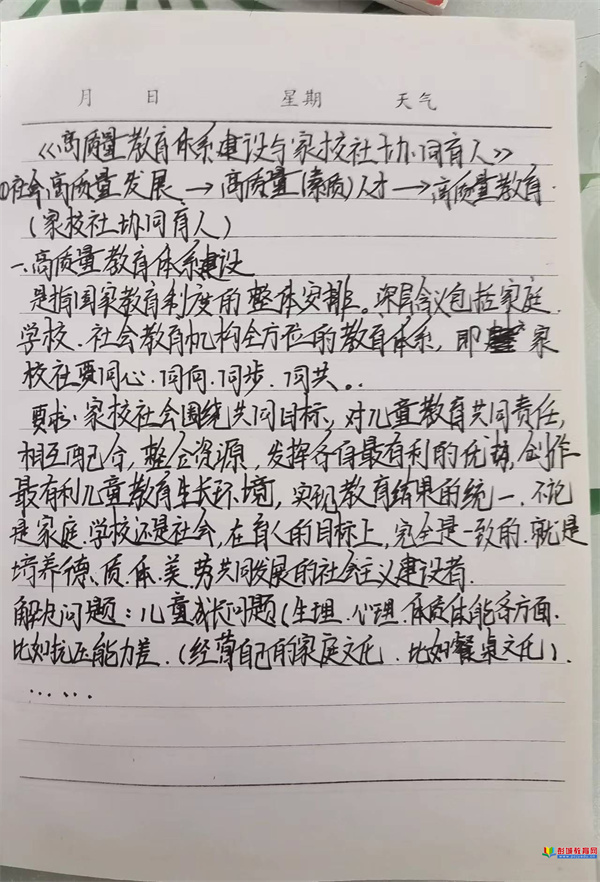 月 日 星期 天气
《高质量教育体系建设与家校社协同育人》
①社会高质量发展→高质量(素质)人才→高质量教育.
(家校社协同育人)
一.高质量教育体系建设
是指国家教育制度的整体安排。深层含议包括家庭.
学校.社会教育机构全方位的教育体系,即 家
校社要同心.同向.同步.同共。.
要求:家校社会围绕共同目标,对儿童教育共同责任,
相互配合,整合资源,发挥各自最有利的优势,创作
最有利儿童教育生长环境,实现教育结果的统一.不论
是家庭.学校还是社会,在育人的目标上,完全是一致的.就是
培养德、质、体、美、劳共同发展的社会主义建设者.
解决问题:儿童成长问题(生理.心理.体质体能各方面.
比如抗压能力差.(经薄自己的家庭文化.比如餐桌文化).
……
彭城教育网